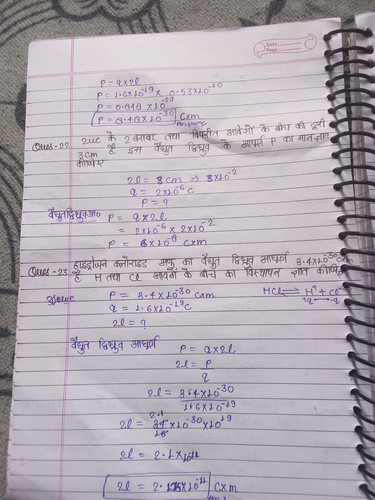 Date
Page
P = q × 2l
P = 1.6×10⁻¹⁹ × 0.53×10⁻¹⁰
P = 0.848 ×10⁻²⁹
P = 8.48×10⁻³⁰ C×m
Answer
Ques-22 2uc के 2 बराबर तथा विपरीत आवेशों के बीच की दूरी
3cm है इस वैद्युत द्विध्रुव के आघूर्ण P का मान ज्ञात
कीजिए
2l = 3cm ⇒ 3×10⁻²
q = 2×10⁻⁶ C
P = ?
वैद्युत द्विध्रुव आ० P = q × 2l
= 2×10⁻⁶ × 2×10⁻²
P = 6×10⁻⁸ C×m
Ques-23 हाइड्रोजन क्लोराइड अणु का वैद्युत द्विध्रुव आघूर्ण 3.4×10⁻³⁰ C×m
है H तथा Cl आयनों के बीच का विस्थापन ज्ञात कीजिए
Solve P = 3.4×10⁻³⁰ C×m HCl ⇌ H⁺ + Cl⁻
q = 1.6×10⁻¹⁹ C
2l = ?
वैद्युत द्विध्रुव आघूर्ण P = q × 2l
2l = P
q
2l = 3.4×10⁻³⁰
1.6×10⁻¹⁹
2.1
2l = 34 ×10⁻³⁰×10¹⁹
16
2l = 2.1×10⁻¹¹
2l = 2.125×10⁻¹¹ C×m